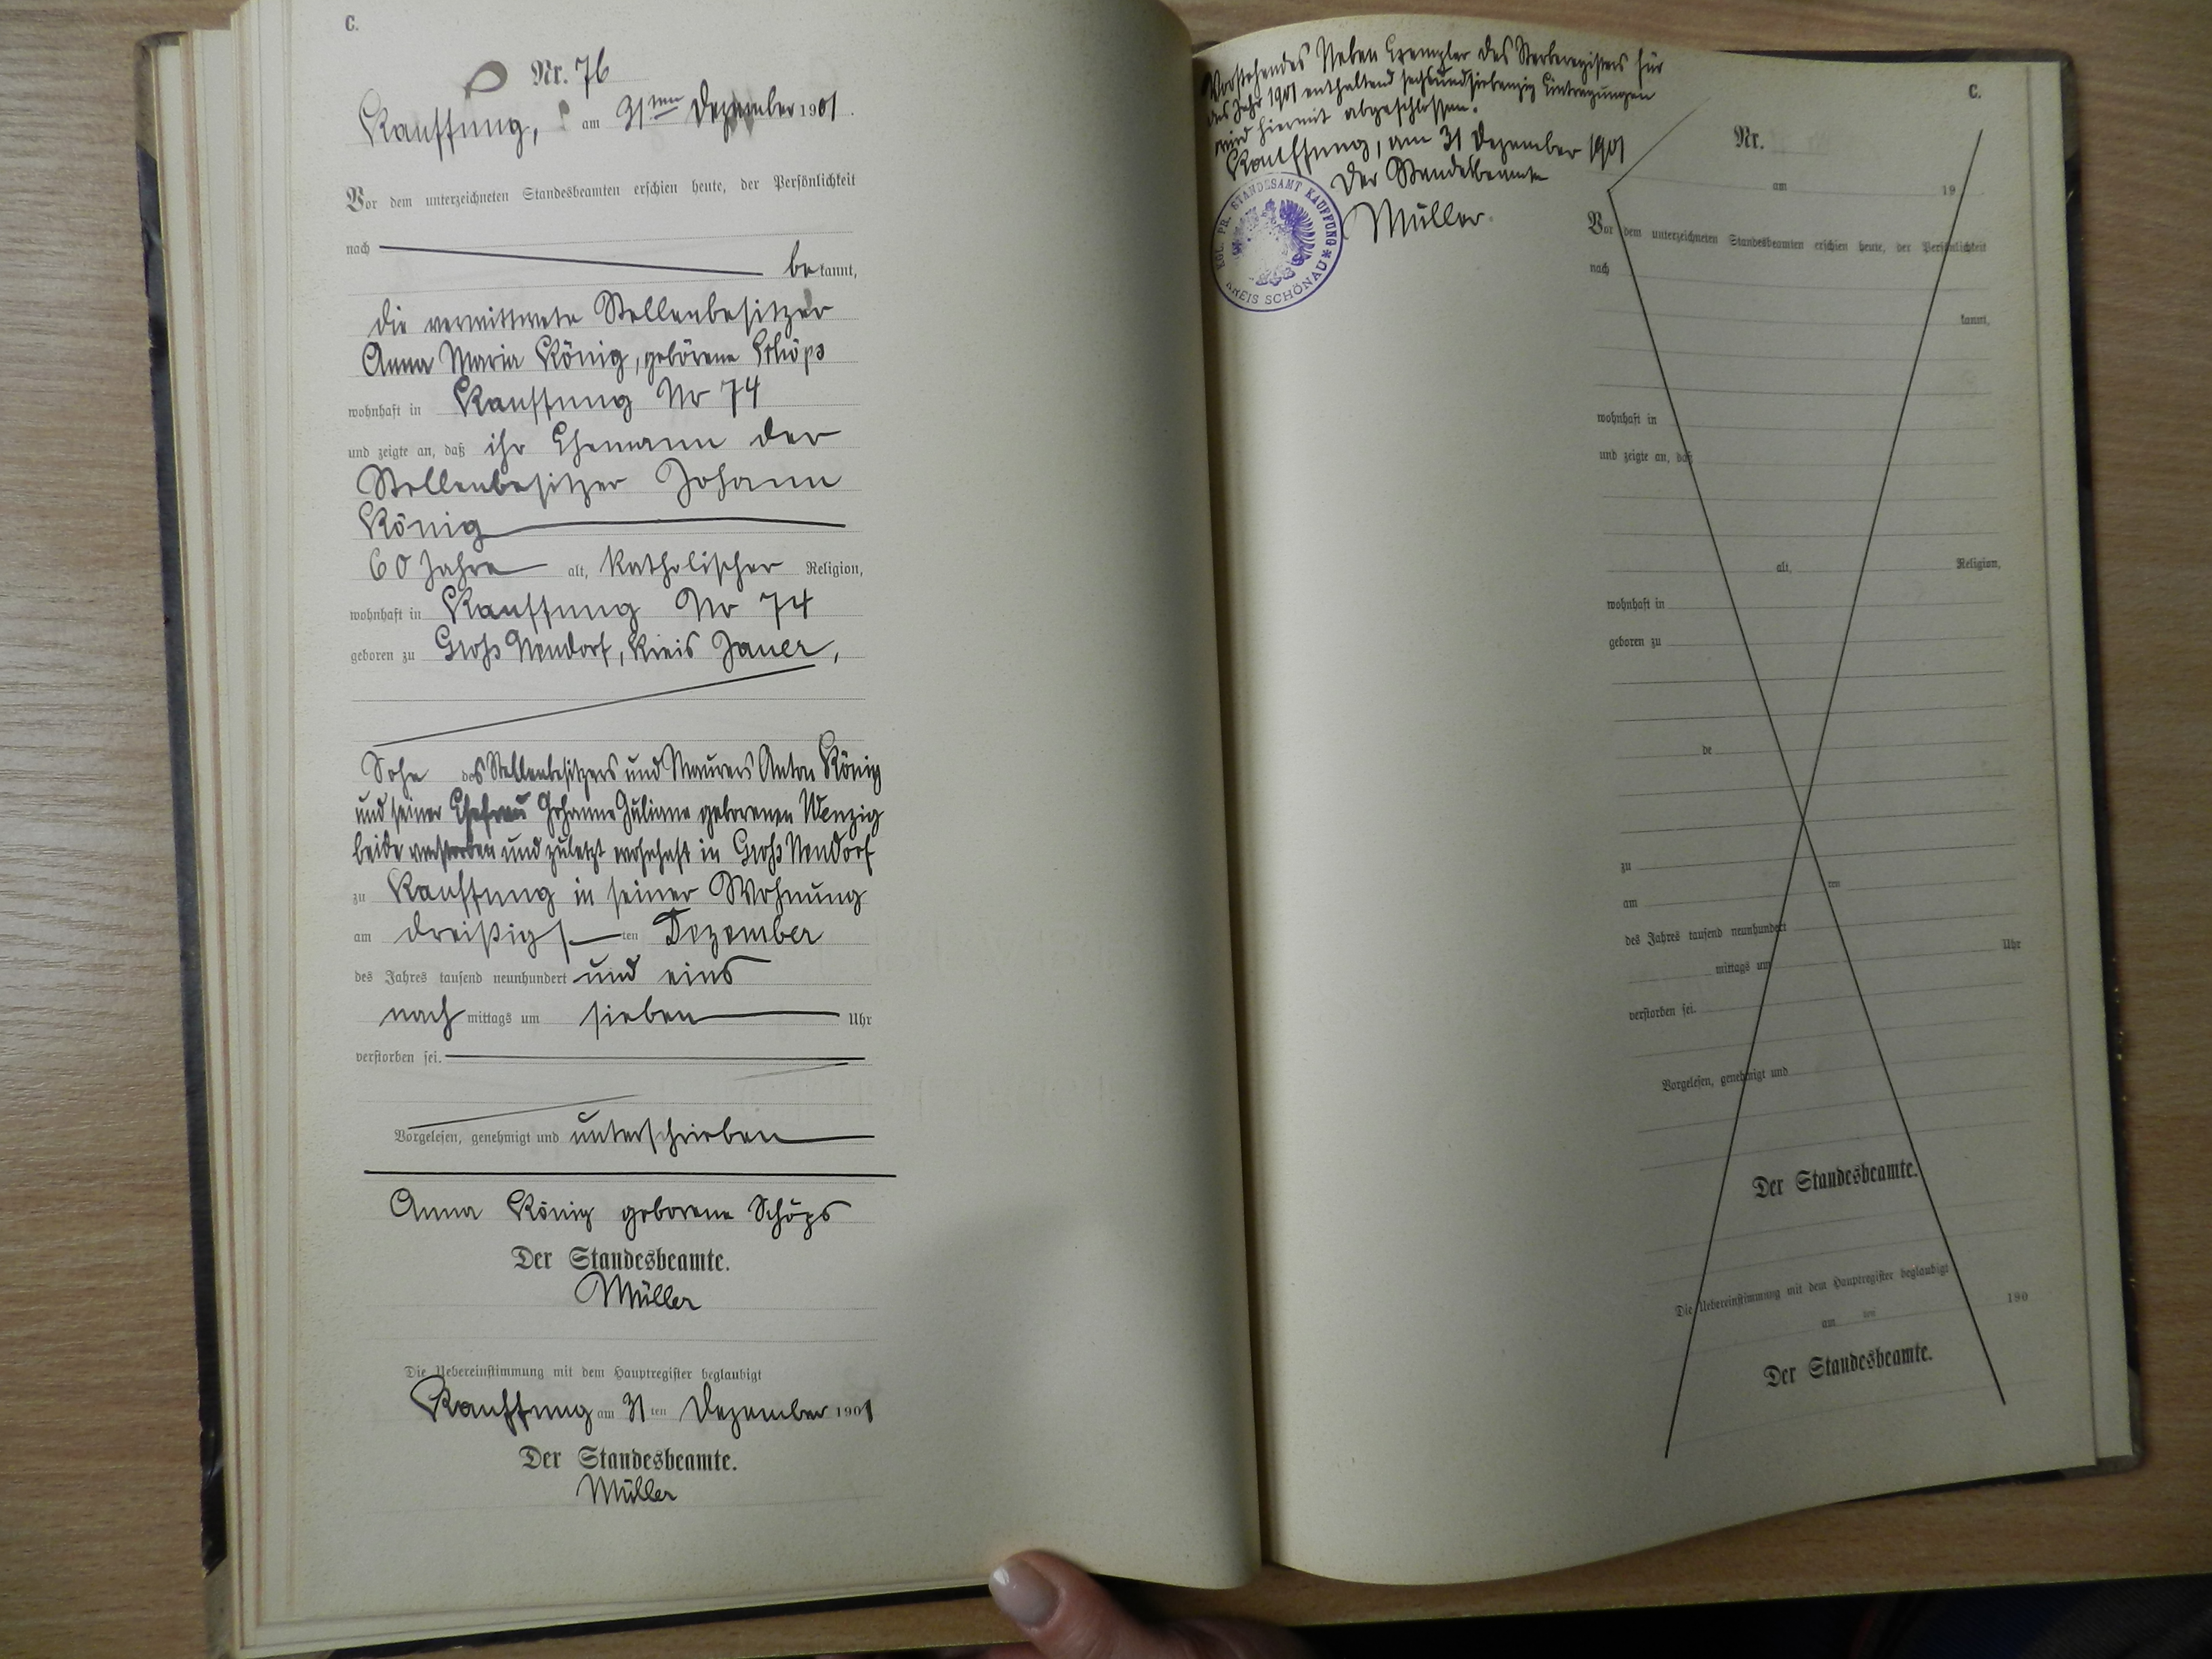 C.
Nr. 76
Kauffung, am 31ten Dezember 1901.
Vor dem unterzeichneten Standesbeamten erschien heute, der Persönlichkeit
nach
bekannt,
die verwittwete Stellenbesitzer
Anna Maria König, geborene Schöps
wohnhaft in Kauffung No 74
und zeigte an, daß ihr Ehemann der
Stellenbesitzer Johann
König
60 Jahre alt, katholischer Religion,
wohnhaft in Kauffung No 74
geboren zu Groß Neudorf, Kreis Jauer,
Sohn des Stellenbesitzers und Maurers Anton König
und seiner Ehefrau Johanne Juliane geborenen Wenzig
beide verstorben und zuletzt wohnhaft in Groß Neudorf
zu Kauffung in seiner Wohnung
am dreißigsten Dezember
des Jahres tausend neunhundert und eins
nach mittags um sieben Uhr
verstorben sei.
Vorgelesen, genehmigt und unterschrieben
Anna König geborene Schöps
Der Standesbeamte.
Müller
Die Uebereinstimmung mit dem Hauptregister beglaubigt
Kauffung am 31ten Dezember 1901
Der Standesbeamte.
Müller
Vorstehendes Neben Exemplar des Sterberegisters für
das Jahr 1901 enthaltend sechsundsiebenzig Eintragungen
wird hiermit abgeschlossen.
Kauffung, am 31 Dezember 1901
Der Standesbeamte
Müller.
KGL. PR. STANDESAMT KAUFFUNG
KREIS SCHÖNAU
C.
Nr.
am 19
Vor dem unterzeichneten Standesbeamten erschien heute, der Persönlichkeit
nach
kannt,
wohnhaft in
und zeigte an, daß
alt, Religion,
wohnhaft in
geboren zu
de
zu
am ten
des Jahres tausend neunhundert
mittags um Uhr
verstorben sei.
Vorgelesen, genehmigt und
Der Standesbeamte.
Die Uebereinstimmung mit dem Hauptregister beglaubigt
am ten 190
Der Standesbeamte.